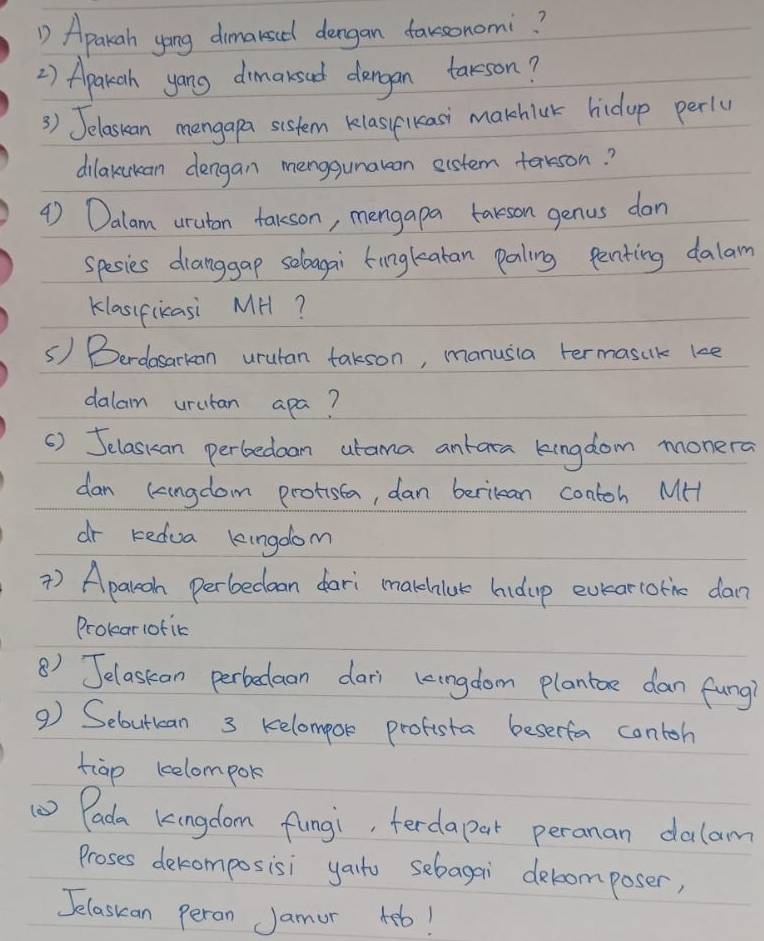 1) Apakah yang dimaksud dengan taksonomi?
2) Apakah yang dimaksud dengan takson?
3) Jelaskan mengapa sistem klasifikasi makhluk hidup perlu
dilakukan dengan menggunakan sistem takson?
4) Dalam urutan takson, mengapa takson genus dan
spesies dianggap sebagai tingkatan paling penting dalam
klasifikasi MH?
5) Berdasarkan urutan takson, manusia termasuk ke
dalam urutan apa?
6) Jelaskan perbedaan utama antara kingdom monera
dan kingdom protista, dan berikan contoh MH
dr kedua kingdom
7) Apakah perbedaan dari makhluk hidup eukariotik dan
Prokariotik
8) Jelaskan perbedaan dari kingdom plantae dan fungi
9) Sebutkan 3 kelompok protista beserta contoh
tiap kelompok
10) Pada kingdom fungi, terdapat peranan dalam
Proses dekomposisi yaitu sebagai dekomposer,
Jelaskan peran Jamur tsb!